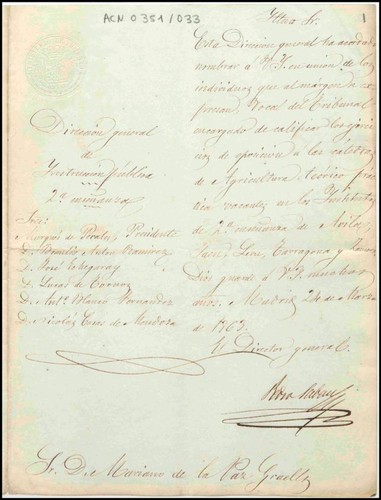 ACN 0351/033
1
Dirección general
de
Instrucción pública
2ª enseñanza
Sres.
Marqués de Perales, Presidente
D. Braulio Anton Ramirez
D. José Echegaray
D. Lucas de Tornos
D. Antº Blanco Fernandez
D. Nicolás Casas de Mendoza
Illmo Sr.
Esta Dirección general ha acordado
nombrar a V.I. en union de los
individuos que al márgen se es-
presan, Vocal del Tribunal
encargado de calificar los ejerci-
cios de oposicion á las cátedras
de Agricultura teórico prác-
tica vacantes en los Institutos
de 2ª enseñanza de Avila,
Jaen, Leon, Tarragona y
Dios guarde á V.I. muchos
años. Madrid 24 de Marzo
de 1863.
El Director general.
Sr. D. Mariano de la Paz Graells